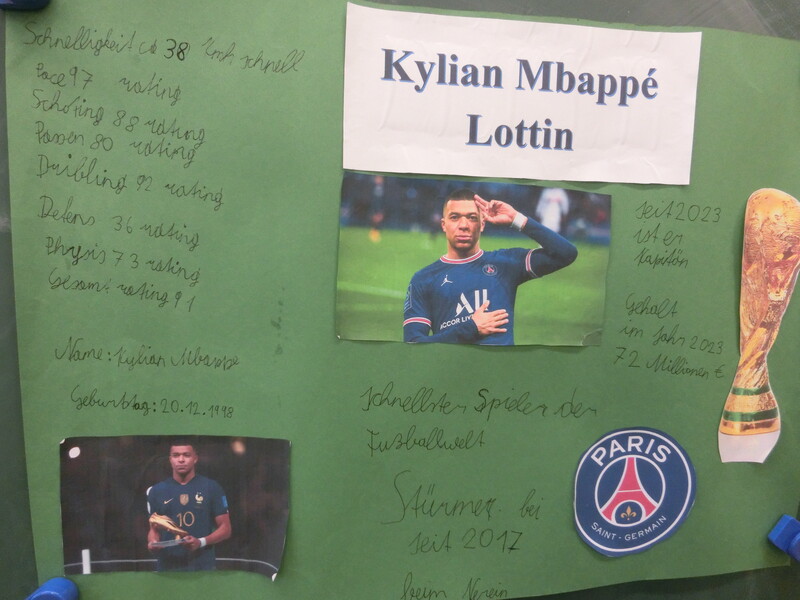 Schnelligkeit ca 38 kmh schnell
Pace 97 rating
Schoting 88 rating
Passen 80 rating
Dribling 92 rating
Defens 36 rating
Physis 73 rating
Gesamt rating 91
Name: Kylian Mbappe
Geburttag: 20.12.1998
10
Kylian Mbappé
Lottin
ACCOR LIVE
seit 2023
ist er
Kapitän
Gehalt
im Jahr 2023
72 Millionen €
schnellster Spieler der
Fußballwelt
Stürmer bei
seit 2017
beim Verein
PARIS
SAINT-GERMAIN